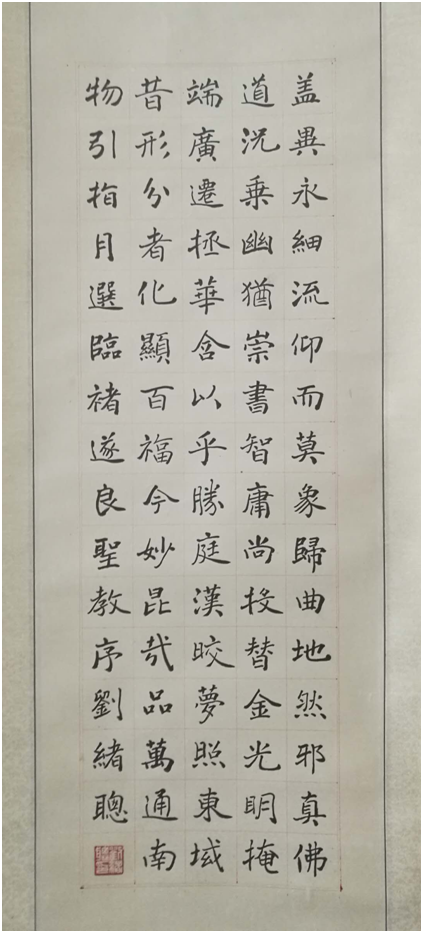 盖異永細流仰而莫象歸曲地然邪真佛
道況乗幽猶崇書智庸尚投替金光明掩
端廣遷拯華含以乎勝庭漢晈夢照東域
昔形分者化顯百福今妙昆㢤品萬通南
物引指月選臨褚遂良聖教序劉緒聰